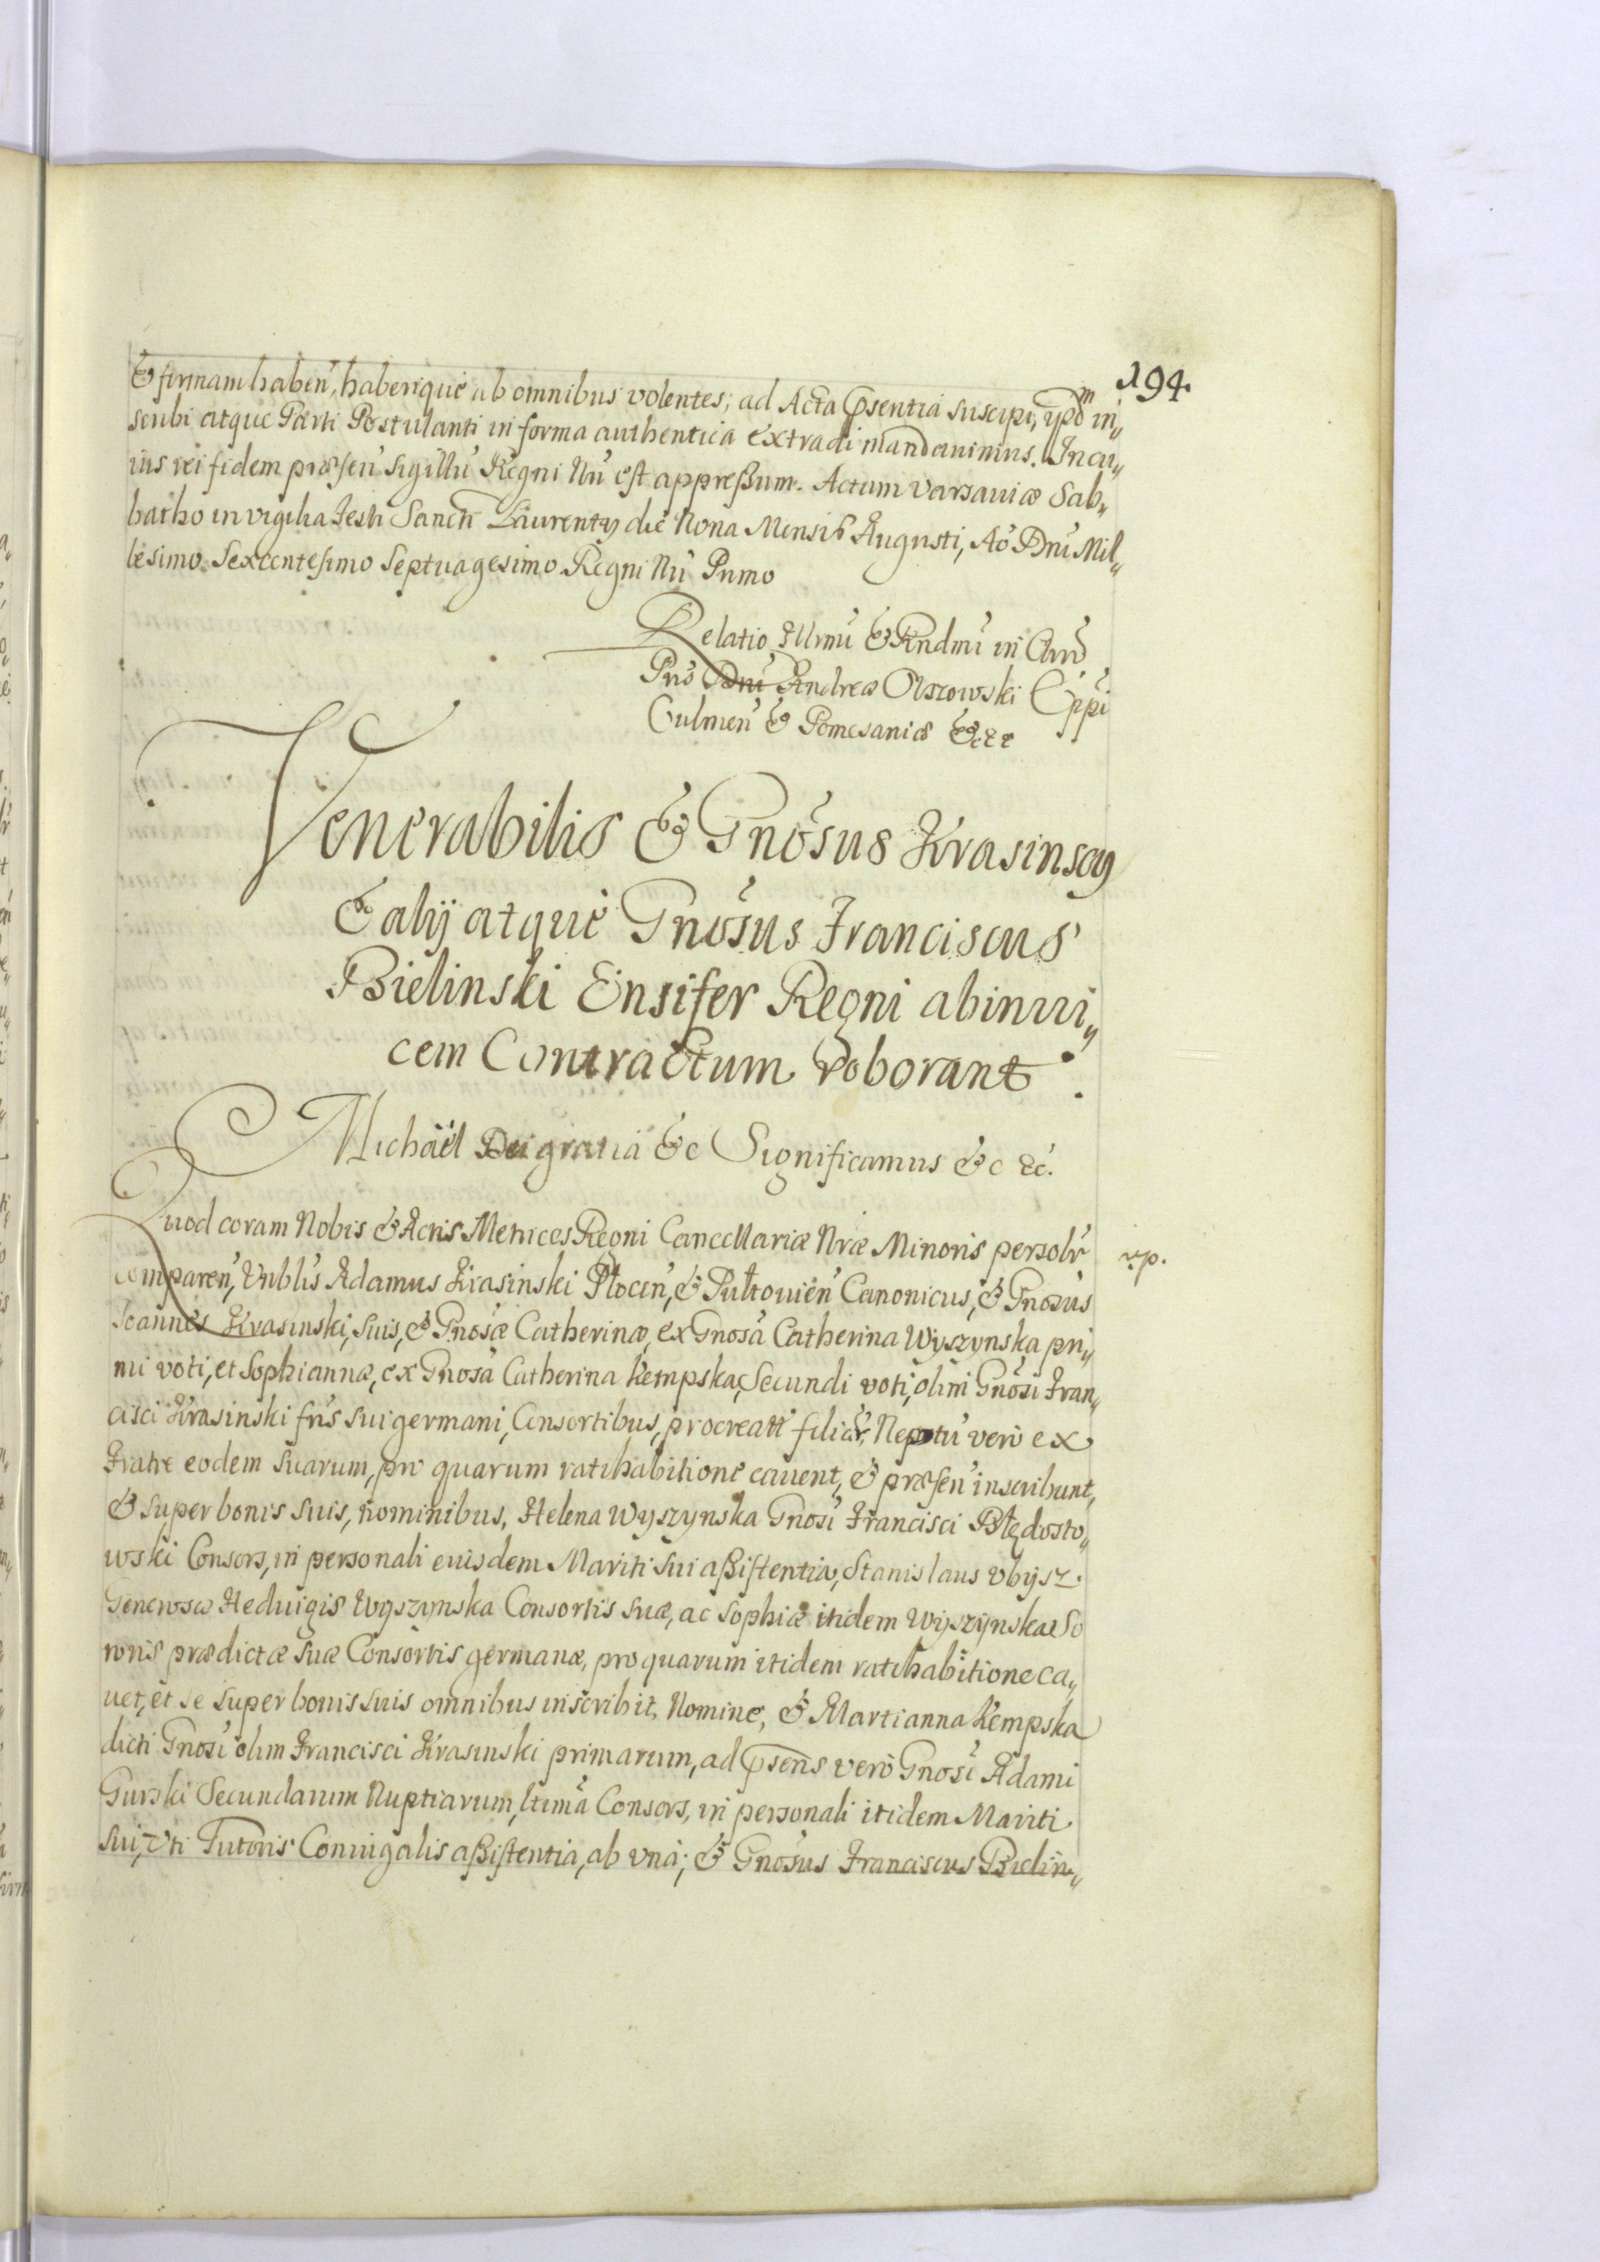 194.
& firmam haben̄, haberiquè ab omnibus volentes, ad Acta p̄sentia suscipi, in„
scribi atquè Parti Postulanti in forma authentica extradi mandauimus. In cu„
ius rei fidem præsen̄ Sigillū Regni Nrī est appreßum. Actum Varsauiæ Sab„
batho in vigilia Festi Sancti Laurentÿ die Nona Mensis Augusti, Aō Dnī Mil„
lesimo Sexcentesimo Septuagesimo Regni Nrī Primo
Relatio Illrmī & Rndmī in Chrō
Pris Dnī Andreæ Olszowski Eppi
Culmen̄ & Pomesaniæ &c
Venerabilis & Gnōsus Krasinscy
& alÿ atquè Gnōsus Franciscus
Bielinski Ensifer Regni abinui„
cem Contractum roborant.
Michäel Dei gratiâ &c Significamus &c &c.
Quod coram Nobis & Actis Metrices Regni Cancellariæ Nræ Minoris persolr̄
rp.
comparen̄, Vnblīs Adamus Krasinski Płocen̄, & Pułtouien̄ Canonicus, & Gnosus
Ioannes Krasinski, suis, & Gnosæ Catherinæ, ex Gnosa Catherina Wyszynska pri„
mi voti, et Sophiannæ, ex Gnosa Catherina Kempska, Secundi voti, olim Gnōsi Fran„
cisci Krasinski fris sui germani, Consortibus, procreatt filiar̄, Neptū verò ex
Fratre eodem suarum, pro quarum ratihabitione cauent, & præsen̄ inscribunt,
& super bonis suis, nominibus, Helena Wyszynska Gnosi Francisci Błędosto„
wski Consors, in personali eiusdem Mariti sui aßistentia, Stanislaus Vbysz.
Genewsæ Heduigis Wyszynska Consortis suæ, ac Sophiæ itidem Wyszynska So
roris prædictæ suæ Consortis germanæ, pro quarum itidem ratihabitione ca„
uet, et se super bonis suis omnibus inscribit, Nomine, & Martianna Kempska
dicti Gnosi olim Francisci Krasinski primarum, ad p̄sens verò Gnosi Adami
Gurski Secundarum Nuptiarum, ltima Consors, in personali itidem Mariti
sui, vti Tutoris Coniugalis aßistentia, ab vnâ; & Gnosus Franciscus Bielin„